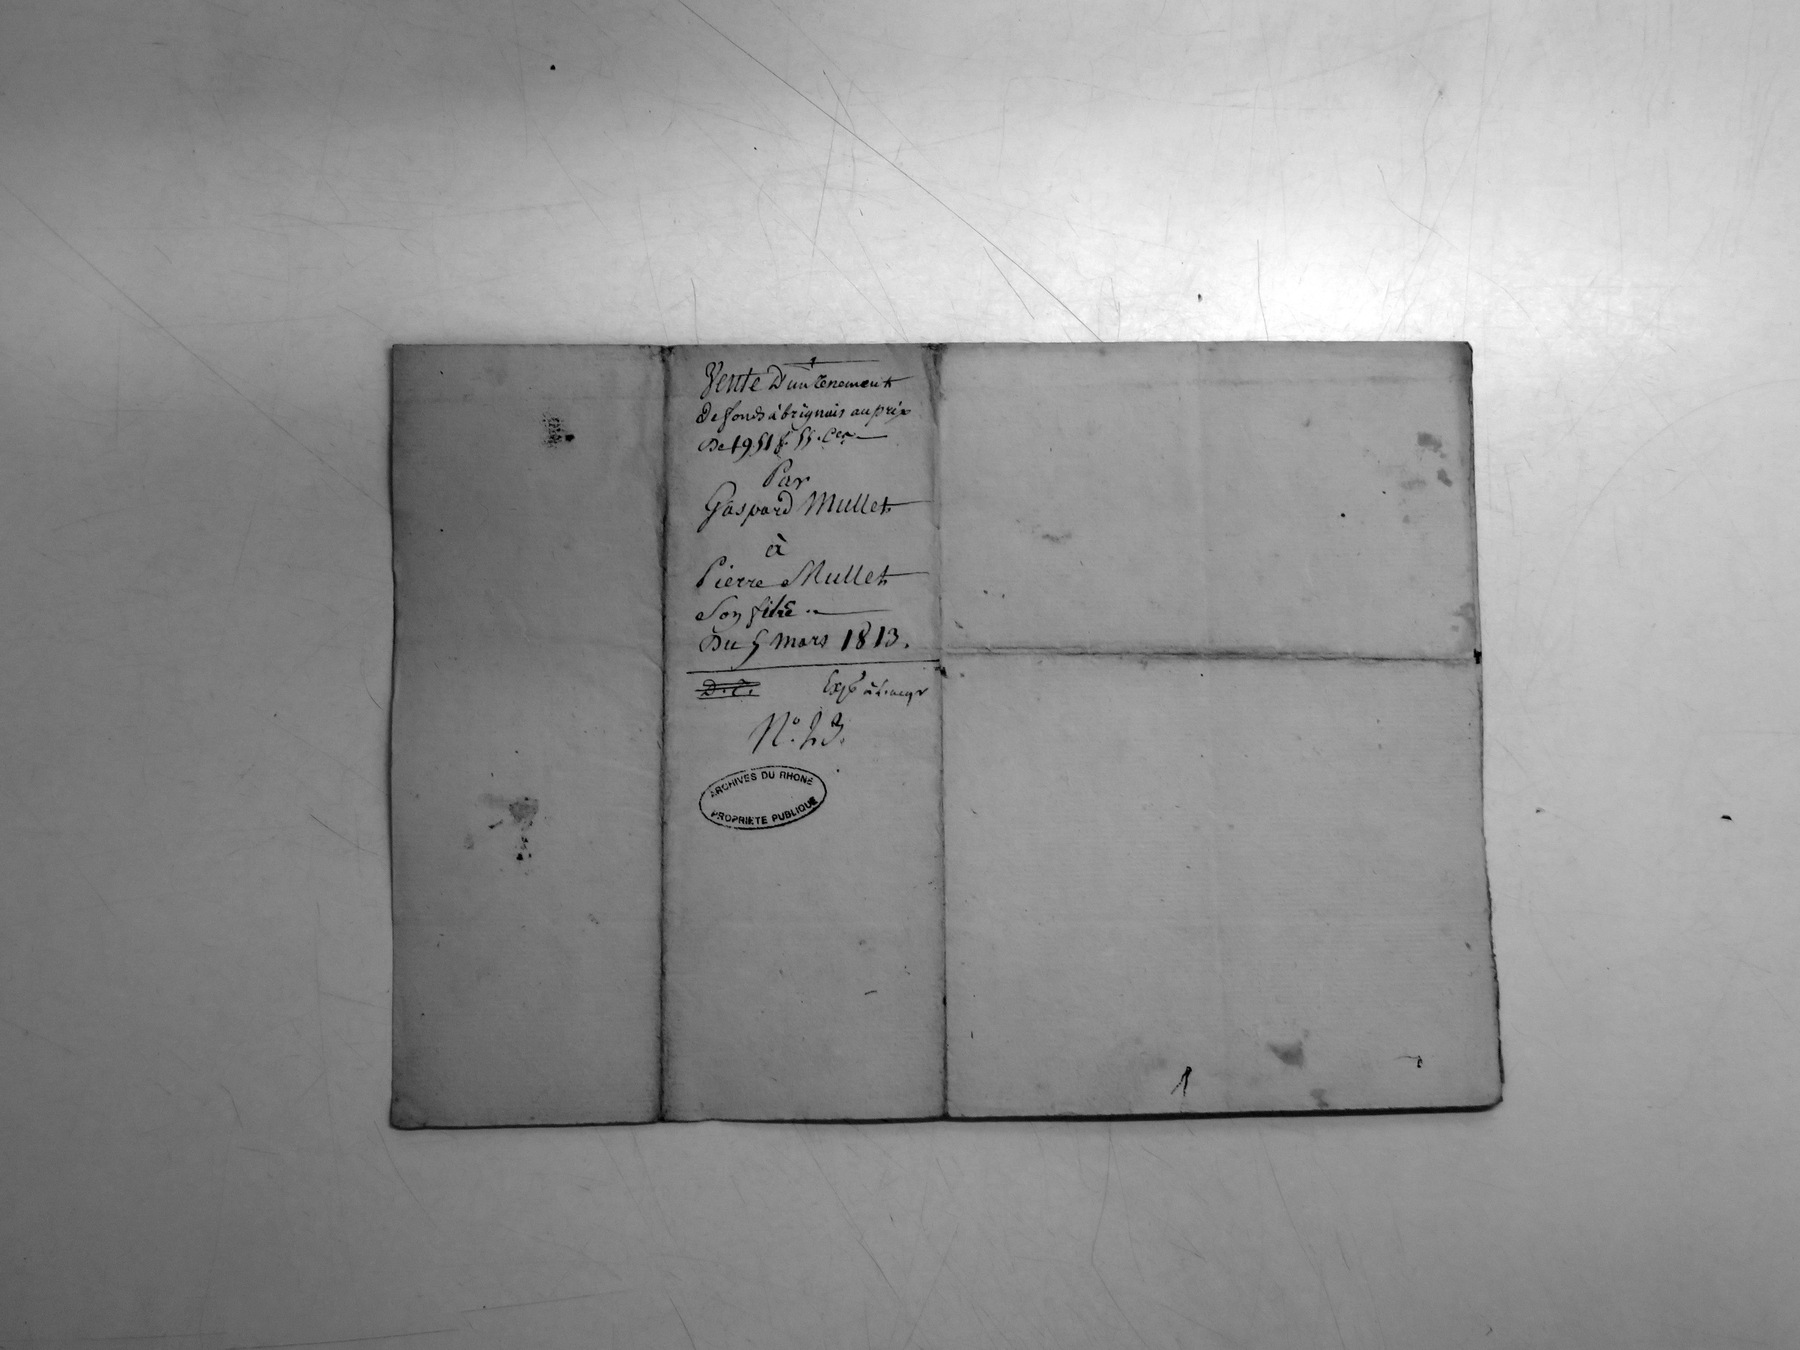 Vente D'un tenement
De fonds à brignais au prix
De 1951 f. 55. Ces
Par
Gaspard Mullet
à
Pierre Mullet
Son frère
Du 5 mars 1813.
D. C.
Expé
N.° 23.
ARCHIVES DU RHONE
PROPRIETE PUBLIQUE
1